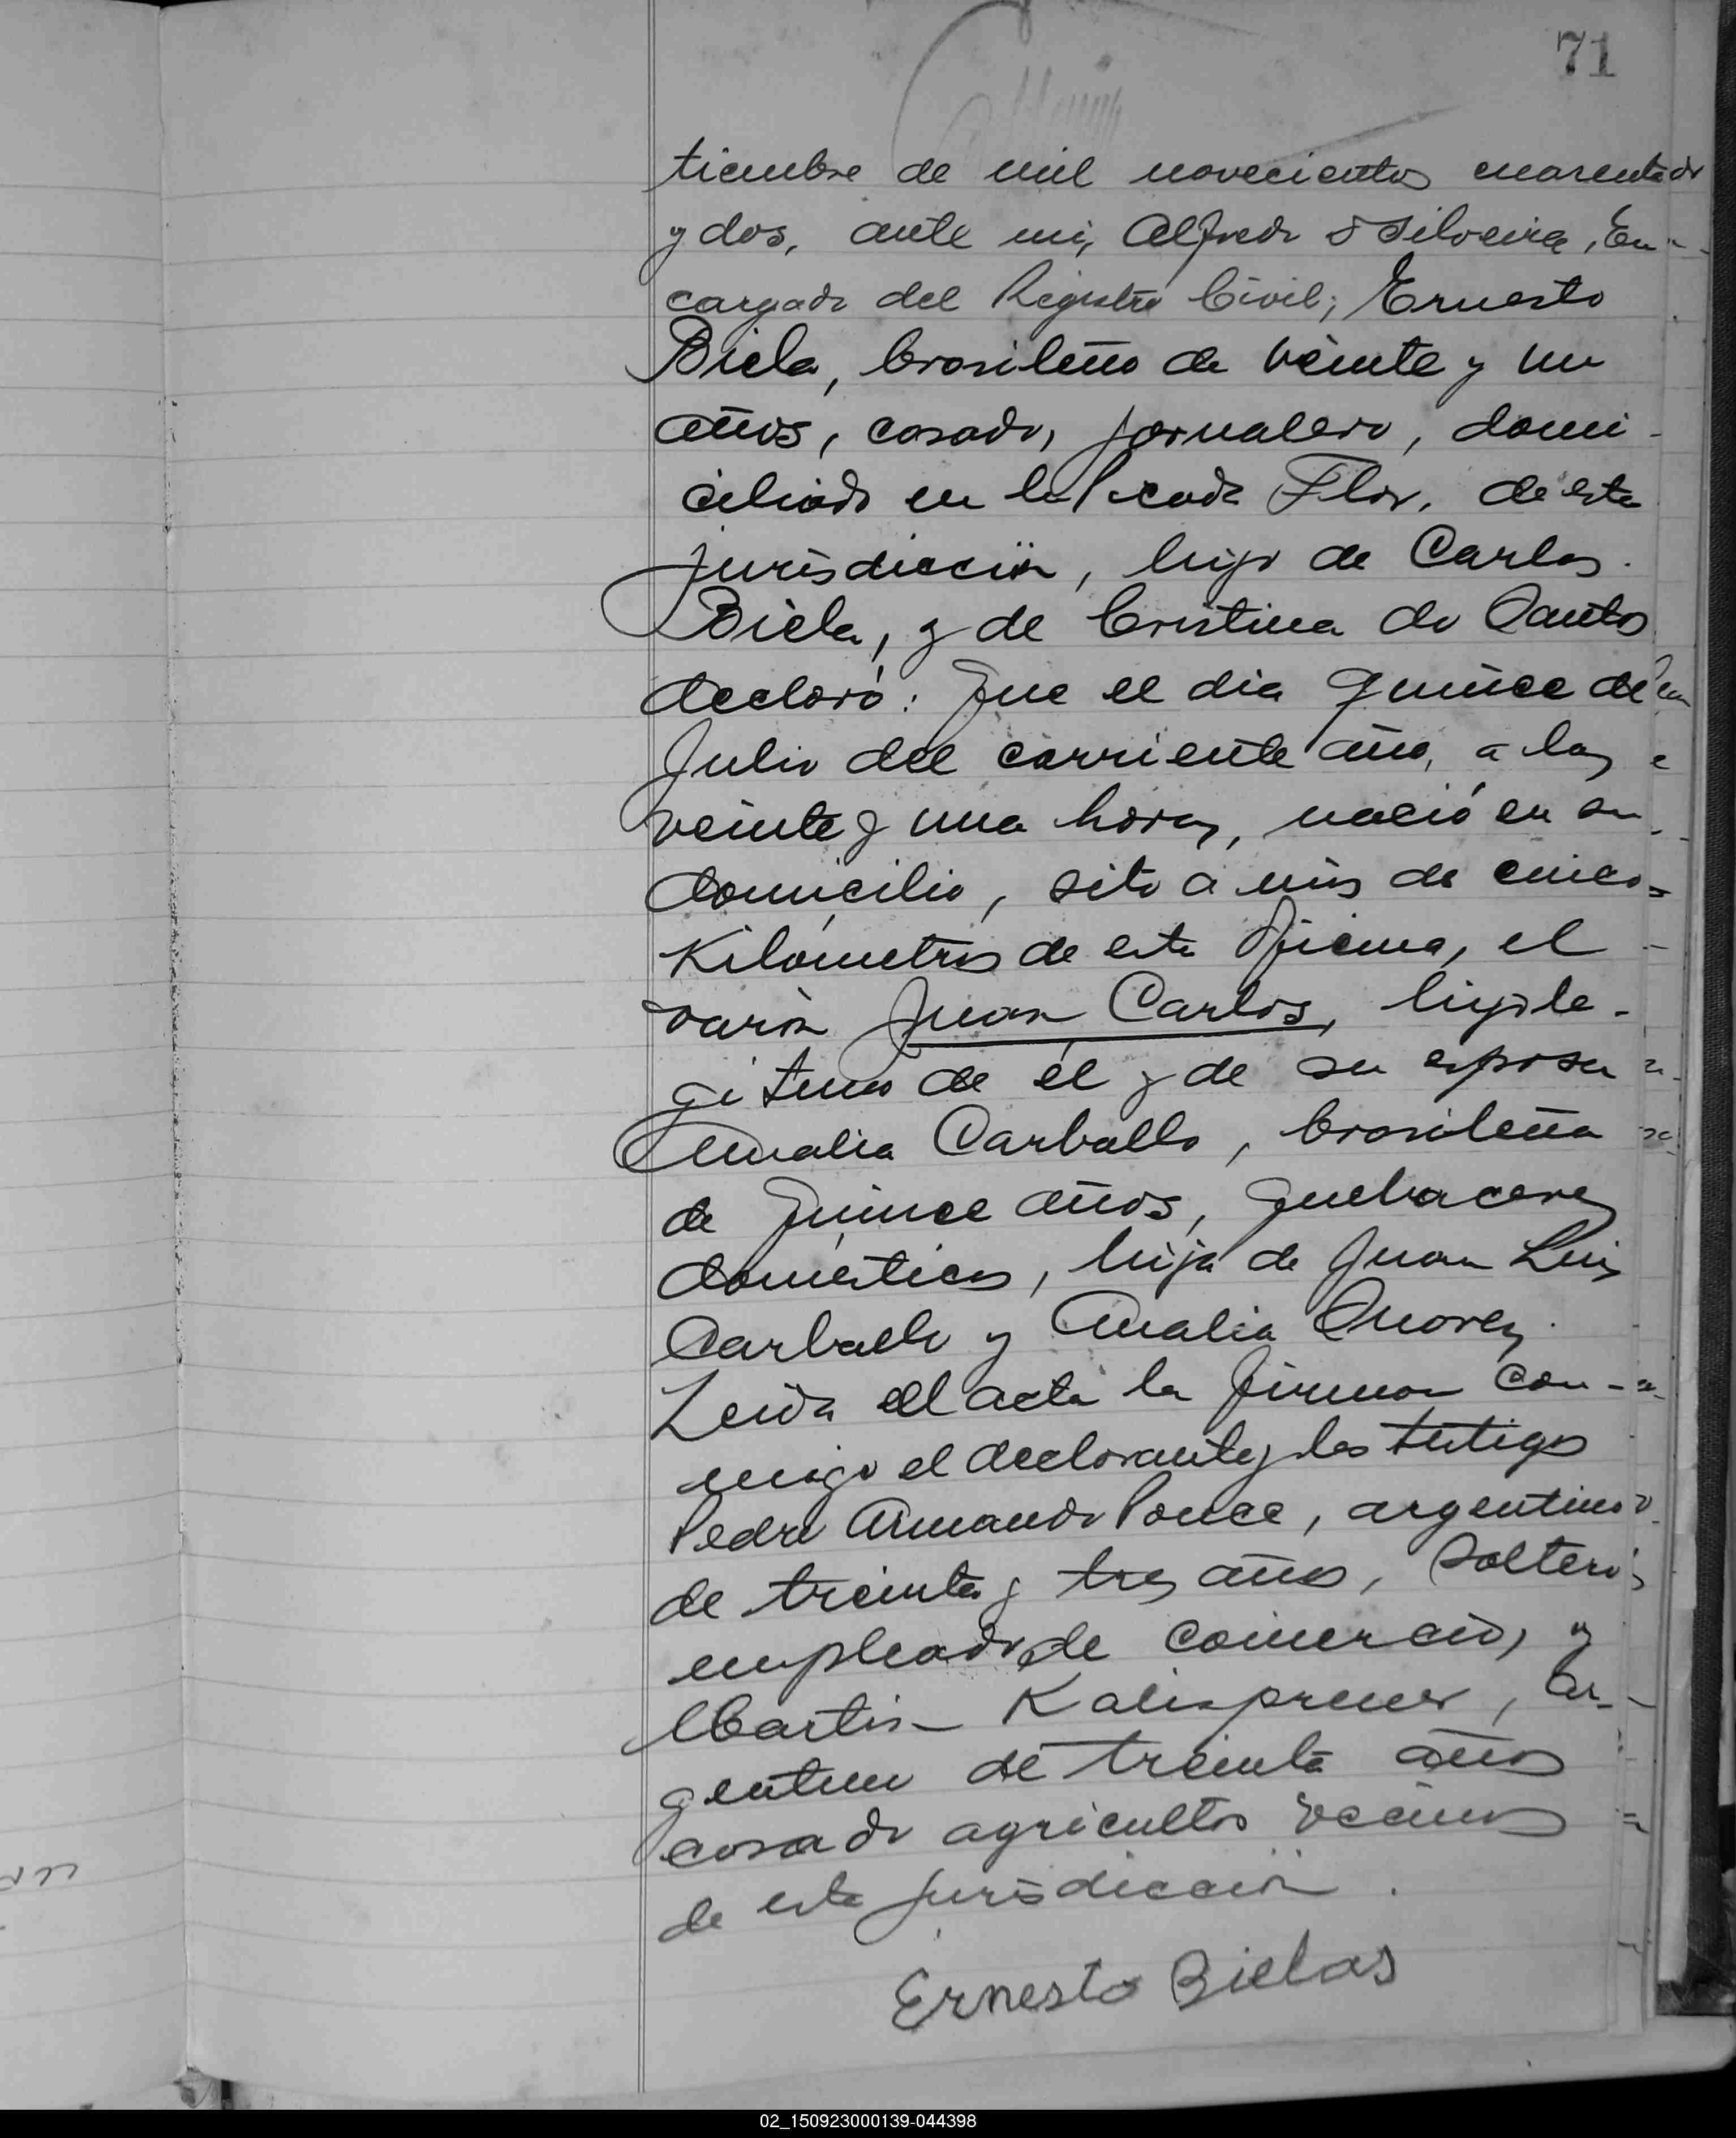 71
tiembre de mil novecientos cuarenta
y dos, ante mi, Alfredo Silveira, En-
cargado del Registro Civil; Ernesto
Biela, brasileño de veinte y un
años, casado, jornalero, domi-
ciliado en la Picada Flor, de esta
jurisdicción, hijo de Carlos
Biela, y de Cristina do Santos
declaró: Que el dia quince de
Julio del corriente año, a las
veinte y una horas, nació en su
domicilio, sito a mis de cinco
Kilómetros de esta Oficina, el
varón Juan Carlos, hijo le-
gitimo de él y de su esposa
Amalia Carballo, brasileña
de quince años, quehaceres
domésticos, hija de Juan Luis
Carballo y Analia
Leida el acta la firman con-
migo el declarante y los testigos
Pedro Armando Ponce, argentino
de treinta y tres años, soltero
empleado de comercio, y
Martin , ar-
gentino de treinta años
casado agricultor vecinos
de esta jurisdicción.
Ernesto Bielas
02_150923000139-044398